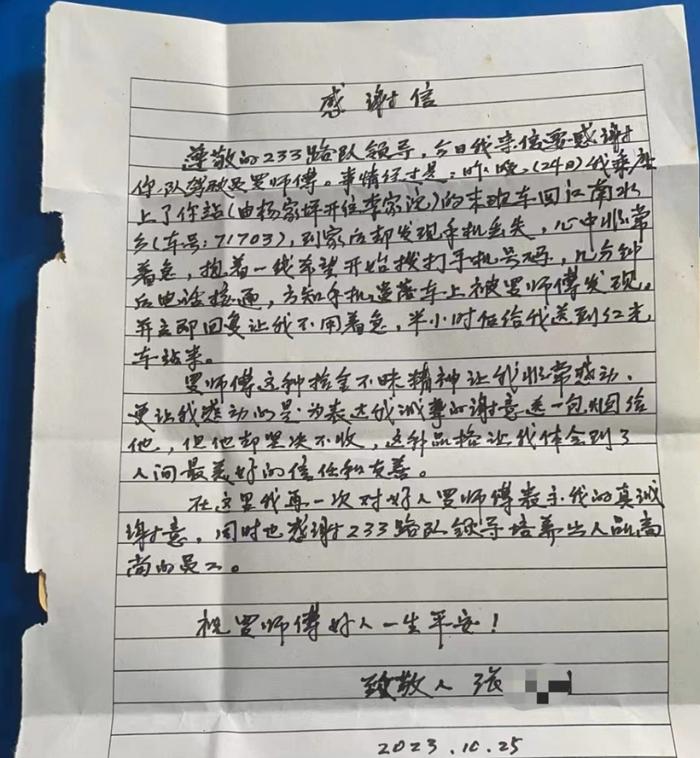 感谢信
尊敬的233路队领导，今日我来信要感谢
你队驾驶员罗师傅。事情经过是：昨晚（24日）我乘座
上了你站（由杨家坪开往李家沱）的末班车回江南水
乡（车号：71703），到家后却发现手机丢失，心中非常
着急，抱着一线希望开始拨打手机号码，几分钟
后电话接通，方知手机遗落车上被罗师傅发现。
并立即回复让我不用着急，半小时后给我送到红光
车站来。
罗师傅这种拾金不昧精神让我非常感动，
更让我感动的是为表达我诚挚的谢意送一包烟给
他，但他却坚决不收，这种品格让我体会到了
人间最美好的信任和友善。
在这里我再一次对好人罗师傅表示我的真诚
谢意，同时也感谢233路队领导培养出人品高
尚的员工。
祝罗师傅好人一生平安！
致敬人 张
2023.10.25